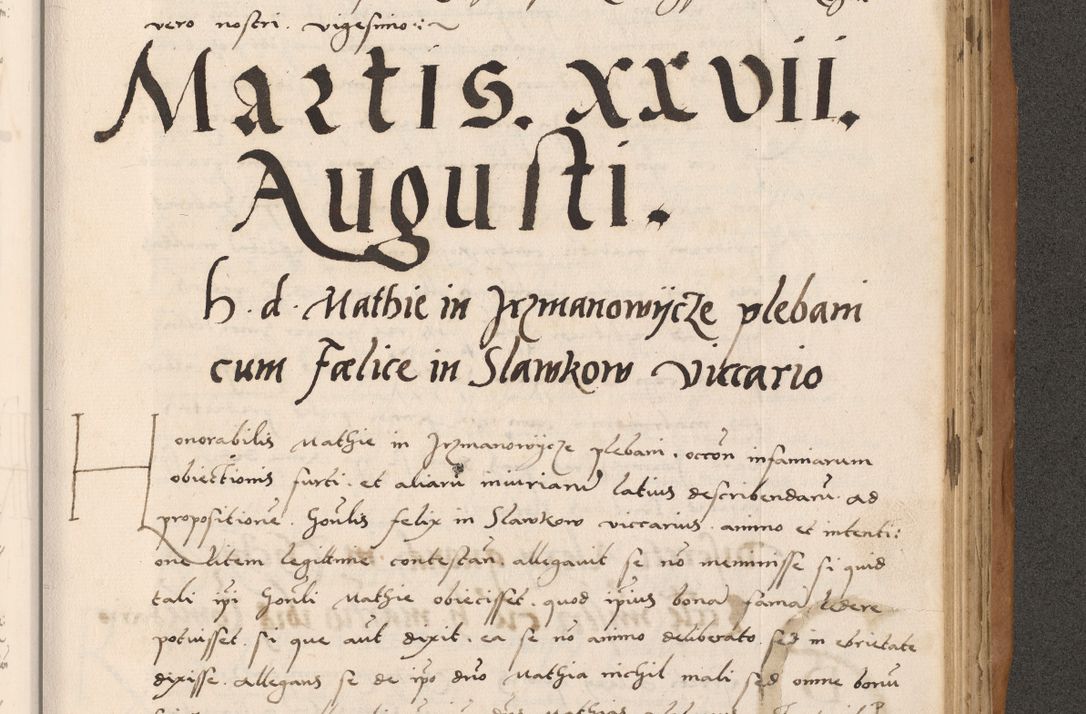 vero nostri. vigesimo:~
Martis. xxvii.
Augusti.
h. d. Mathie in Jrzmanowijcze plebani
cum Fœlice in Slawkow Viccario
Honorabilis Mathie in Jrzmanowijcze plebani. occōn infamiarum
obiectionis furti. et aliarū iniuriarū latius describendarū. ad
propositionē. honlis felix in Slawkow viccarius. animo et intenti:
one litem legittime contestan̄. allegavit se nō meminisse si quid
tali ip̄i honli Mathie obiecisset. quod ip̄ius bonā famā ledere
potuisset. si que aut dixit. ea se nō animo deliberato. sed in ebrietate
dixisse. allegans se de ip̄o dn̄o Mathia nichil mali sed omne bonū